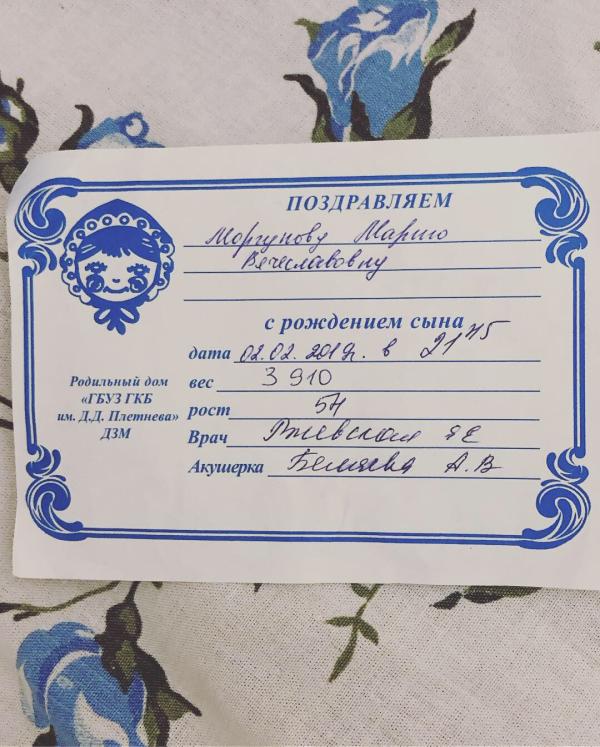 ПОЗДРАВЛЯЕМ
Моргунову Марию
Вячеславовну
с рождением сына
дата 02.02.2019г. в 21 45
вес 3 910
рост 54
Врач Ржевская
Акушерка Беляева А.В
Родильный дом
«ГБУЗ ГКБ
им. Д.Д. Плетнева»
ДЗМ